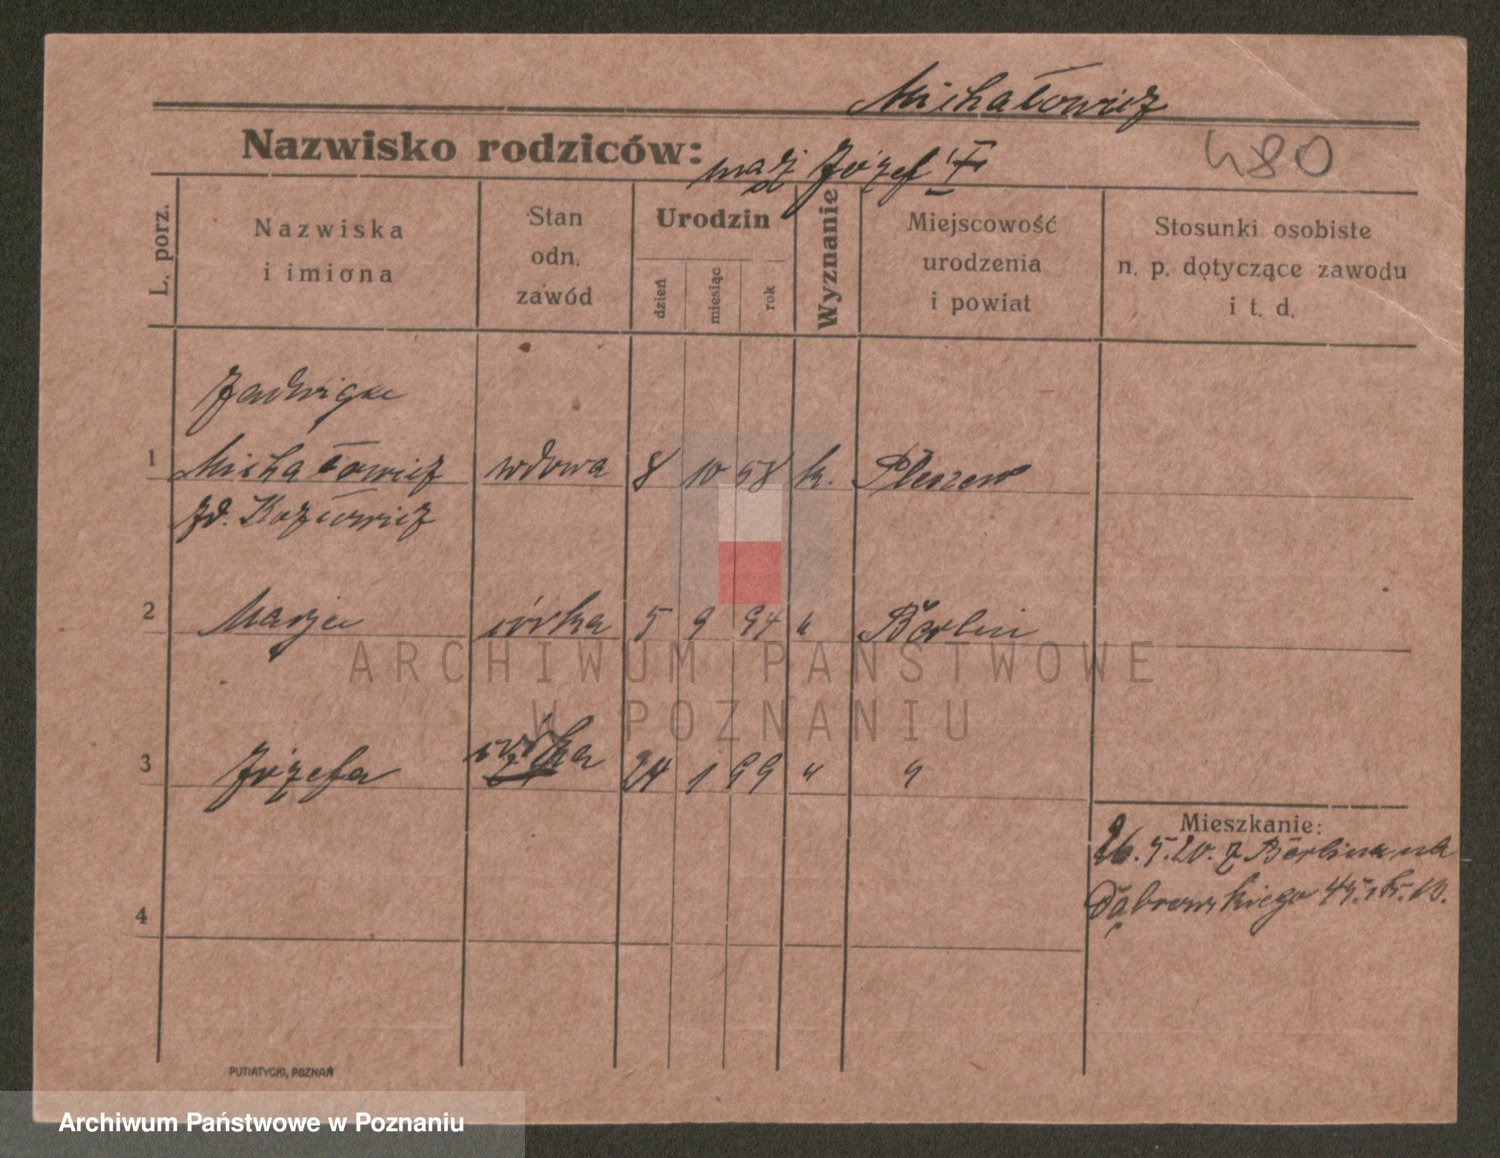 Michałowicz
Nazwisko rodziców:
mąż Józef †
480
L. porz.
Nazwiska
i imiona
Stan
odn.
zawód
Urodzin
dzień
miesiąc
rok
Wyznanie
Miejscowość
urodzenia
i powiat
Stosunki osobiste
n. p. dotyczące zawodu
i t. d.
Jadwiga
1 Michałowicz wdowa 8 10 58 k. Pleszew
zd. Koziowicz
2 Marja córka 5 9 94 " Berlin
ARCHIWUM PAŃSTWOWE
W POZNANIU
3 Józefa córka 24 1 99 " "
Mieszkanie:
26.5.20. z Berlina ul.
Dąbrowskiego 45.
4
PUTIATYCKI, POZNAŃ
Archiwum Państwowe w Poznaniu